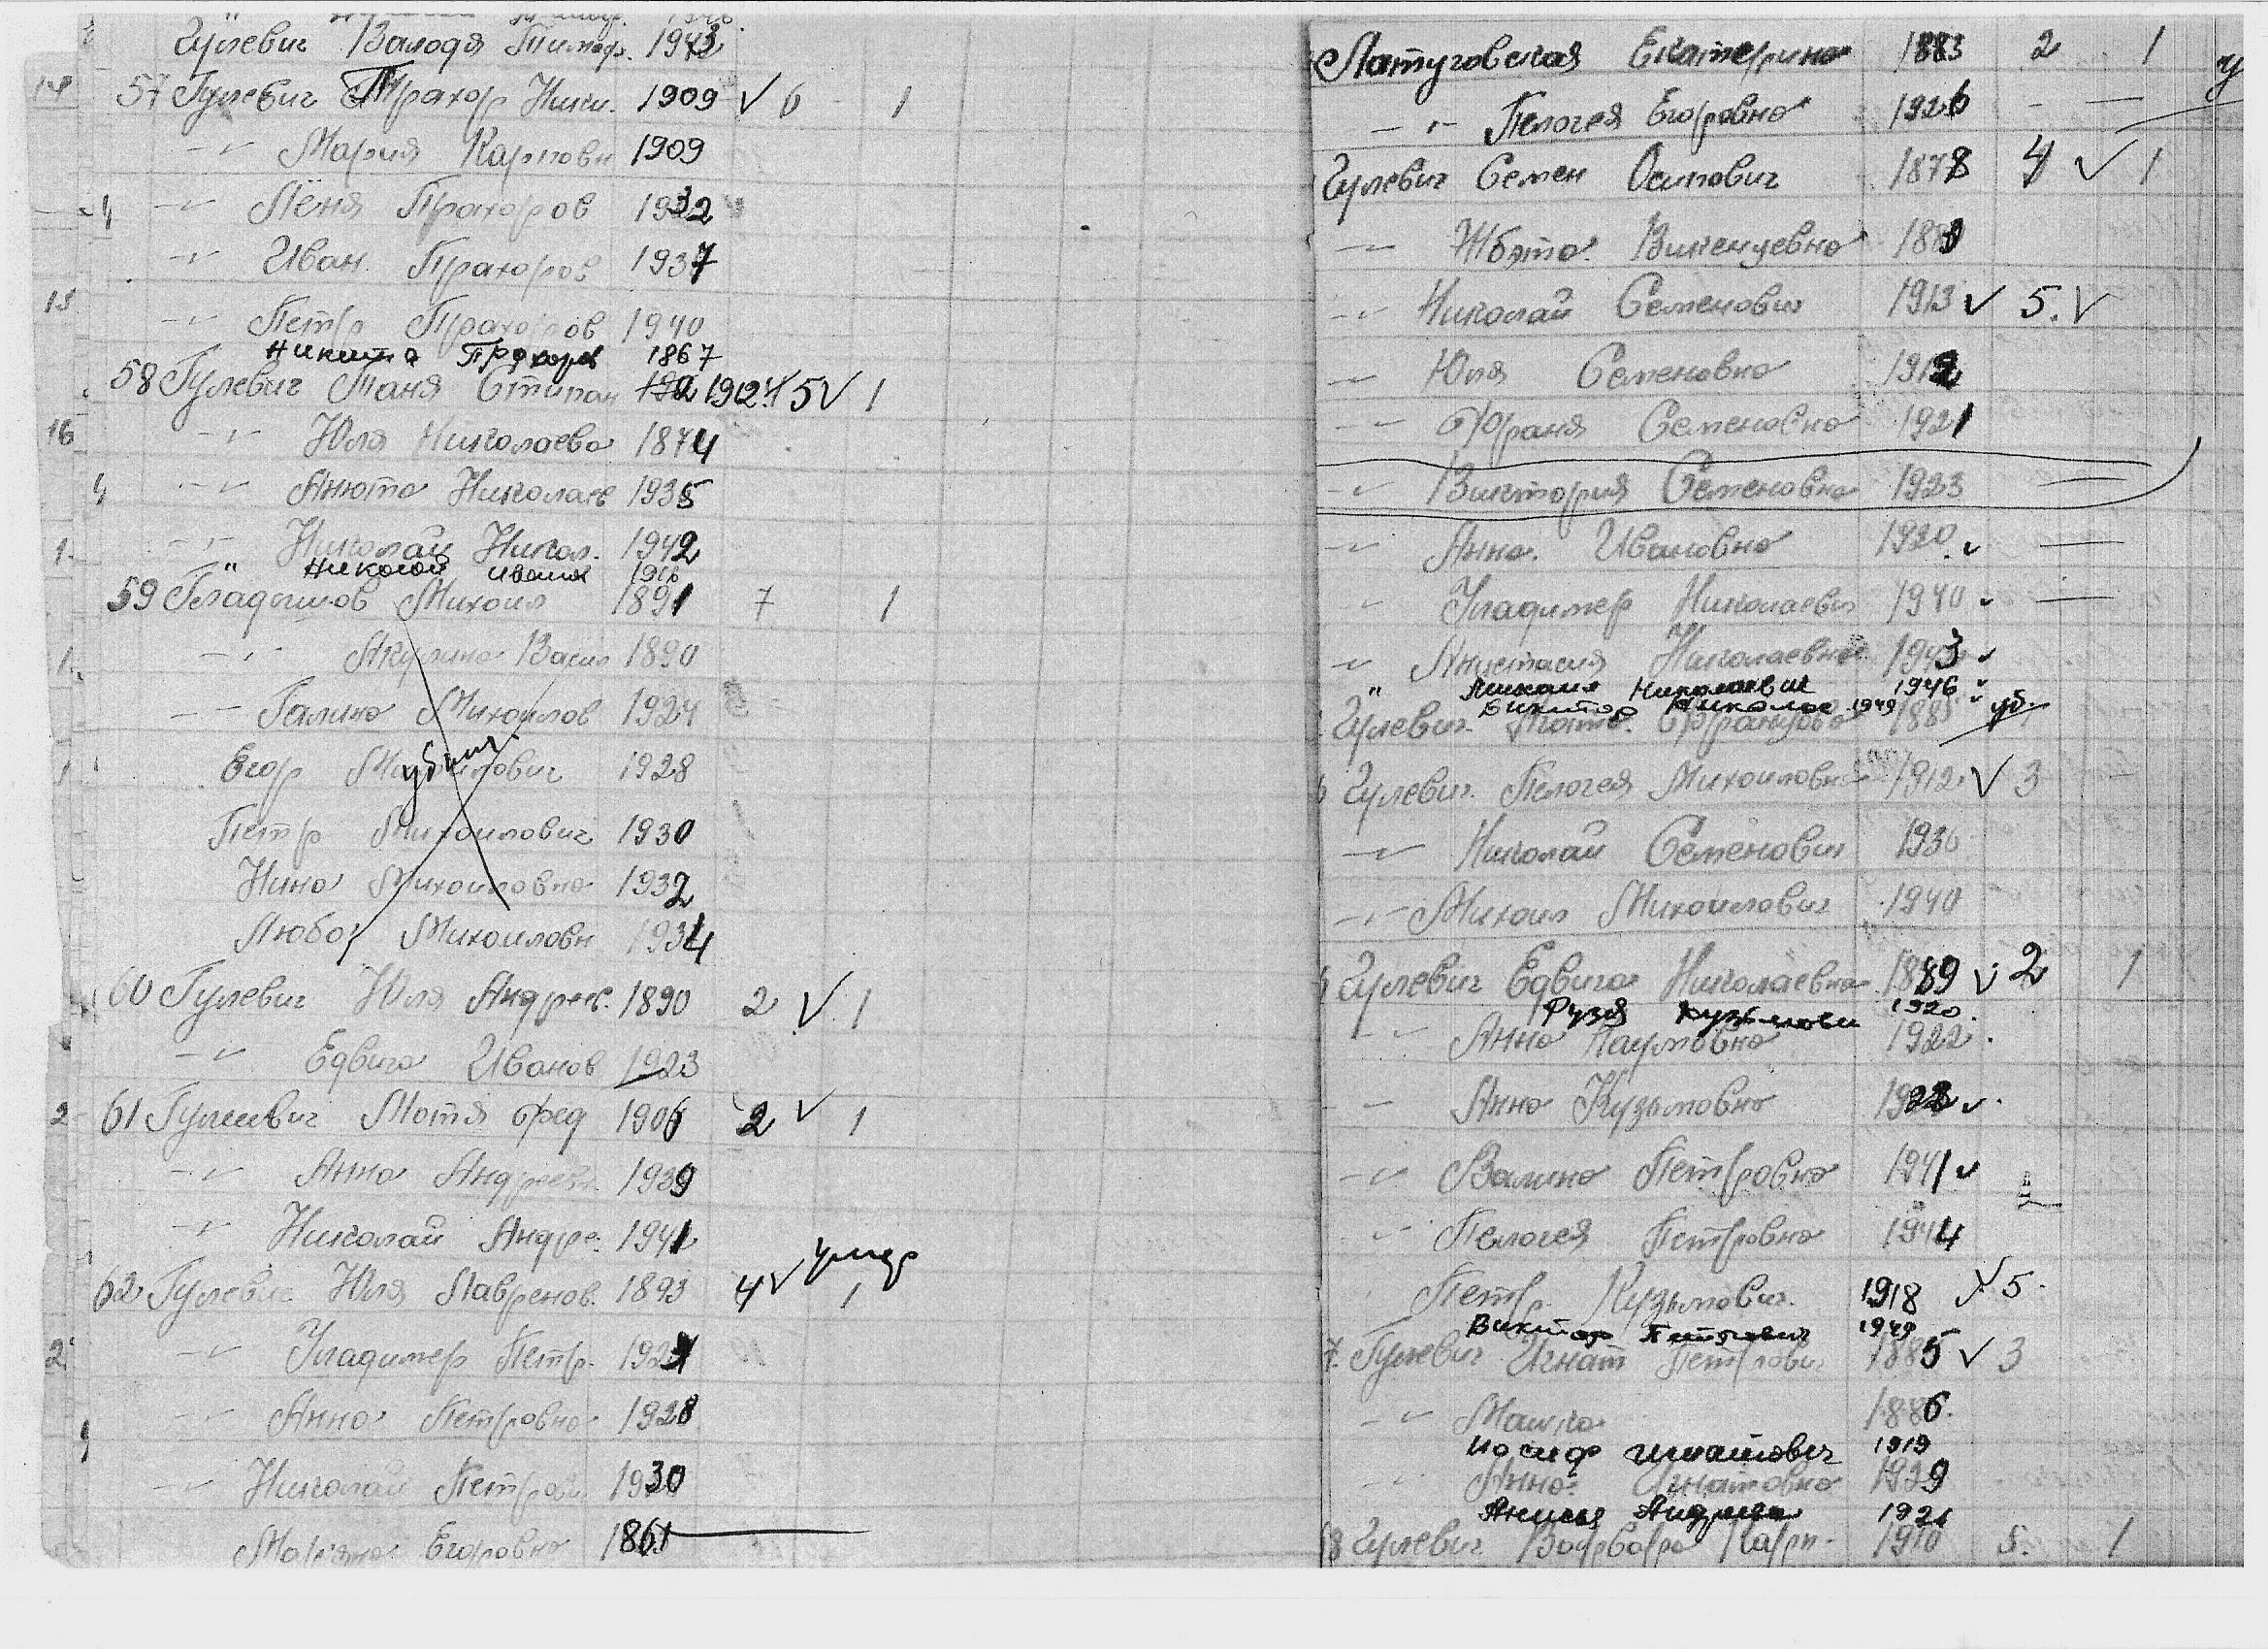 Гулевич Валодя Тимоф. 1943
14 57 Гулевич Прахор Ники. 1909 √ 6 1
-"- Мария Карповн 1909
-"- Лёня Прахоров 1932
-"- Иван Прахоров 1937
15
-"- Петр Прахоров 1940
Никита Прохоров 1867
58 Гулевич Таня Стипан 1912 5 √ 1
16 -"- Юля Николаева 1874
4 -"- Анюта Николаев 1935
-"- Николай Никол. 1942
" Николай Иванов 1916
59 Гладышов Михаил 1891 7 1
-"- Акулина Васил 1890
-"- Галина Михайлов 1924
Егор Михайлович 1928
убыл
Петр Михайлович 1930
Нина Михайловна 1932
Люба Михайловн 1934
60 Гулевич Юля Андрее. 1890 2 √ 1
-"- Едвига Иванов 1923
2 61 Гулевич Мотя Фед 1906 2 √ 1
-"- Анна Андреевн. 1939
-"- Николай Андре. 1941
умер
62 Гулевич Юля Лавренов. 1893 4 √ 1
2 -"- Уладимер Петр. 1924
-"- Анна Петровна 1928
-"- Николай Петров. 1930
Марьяна Егоровна 1861
Латуговская Екатерина 1883 2 1
-"- Пелогея Егоровна 1926 - —
Гулевич Семен Осипович 1878 4 √ 1
-"- Викенцевна
-"- Николай Семенович 1913 √ 5. √
-"- Юля Семеновна 1912
-"- Франя Семеновна 1921
-"- Виктория Семеновна 1923 —
-"- Анна Ивановна 1920 √ —
" Уладимер Николаевич 1940 √ —
-"- Анустасия Николаевна 1943 √
" Михаил Николаевич 1946 √
Виктор Николаев 1949
Гулевич Францовна 188 уб.
Гулевич Пелогея Михайловна 1912 √ 3 -
-"- Николай Семенович 1930
-"- Михаил Михайлович 1940
Гулевич Едвига Николаевна 1889 √ 2 1
Рузя Кузьмовн 1920
-"- Анна Наумовна 1922
-"- Анна Кузьмовна √
-"- Валина Петровна 1941 √
-"- Пелогея Петровна 1944
Петр Кузьмович 1918 √ 5.
Виктор Петрович 1949
7. Гулевич Игнат Петрович 1885 √ 3
-"- 1886.
Иосиф Игнатович 1919
" Анна Игнатовна 1929
Андреев 1921
8 Гулевич Варвара Карп- 1910 5. 1